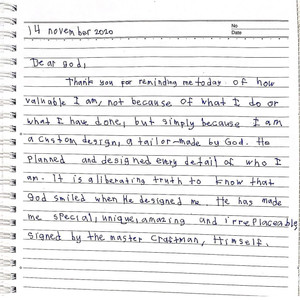 14 november 2020
No.
Date
Dear god,
Thank you for reminding me today of how
valuable I am, not because of what I do or
what I have done, but simply because I am
a custom design, a tailor-made by God. He
planned and designed every detail of who I
am. It is a liberating truth to know that
god smiled when He designed me. He has made
me special, unique, amazing and irreplaceable,
signed by the master Craftman, Himself.